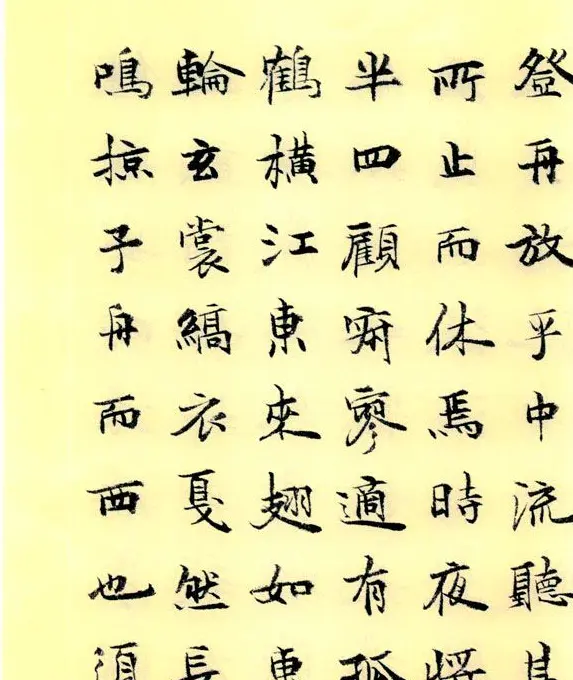 登舟放乎中流聽其
所止而休焉時夜將
半四顧寂寥適有孤
鶴橫江東來翅如車
輪玄裳縞衣戛然長
鳴掠予舟而西也須